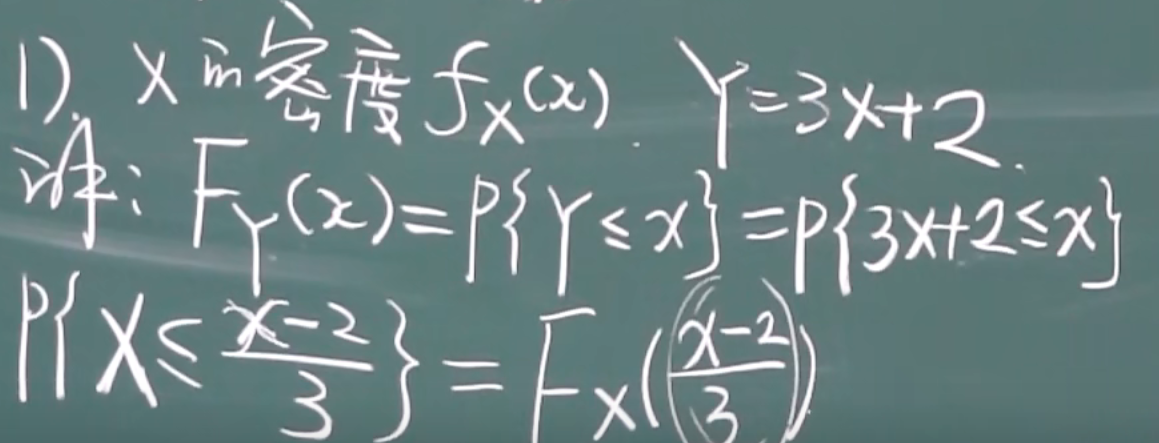 1). X的密度 f_X(x). Y=3X+2.
解: F_Y(x)=P{Y≤x}=P{3X+2≤x}
P{X≤\frac{x-2}{3}}=F_X(\frac{x-2}{3})